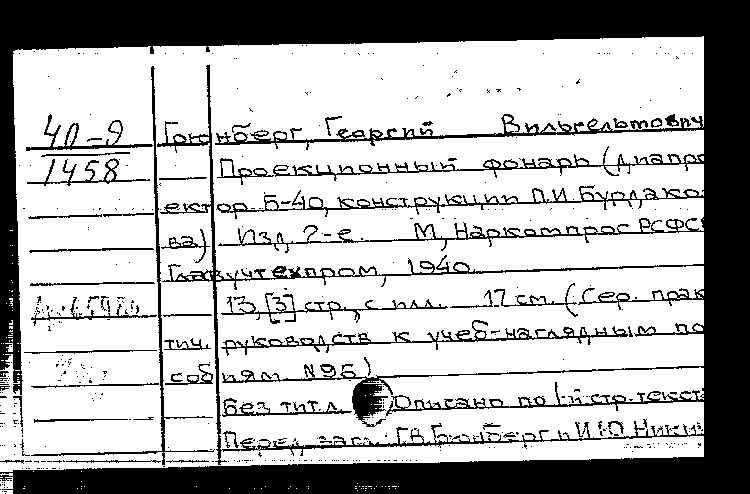 40-9 Грюнберг, Георгий Вильгельмович
1458 Проекционный фонарь (диапро
ектор Б-40, конструкции П.И. Бурдако
ва) Изд. 2-е. М, Наркомпрос РСФС
Главучтехпром, 1940
13, [3] стр., с илл. 17 см. (Сер. прак
тич. руководств к учеб-наглядным по
собиям №96)
Без тит.л. Описано по 1-й стр. текст
Перед загл.: Г.В. Грюнберг и И.Ю. Ники